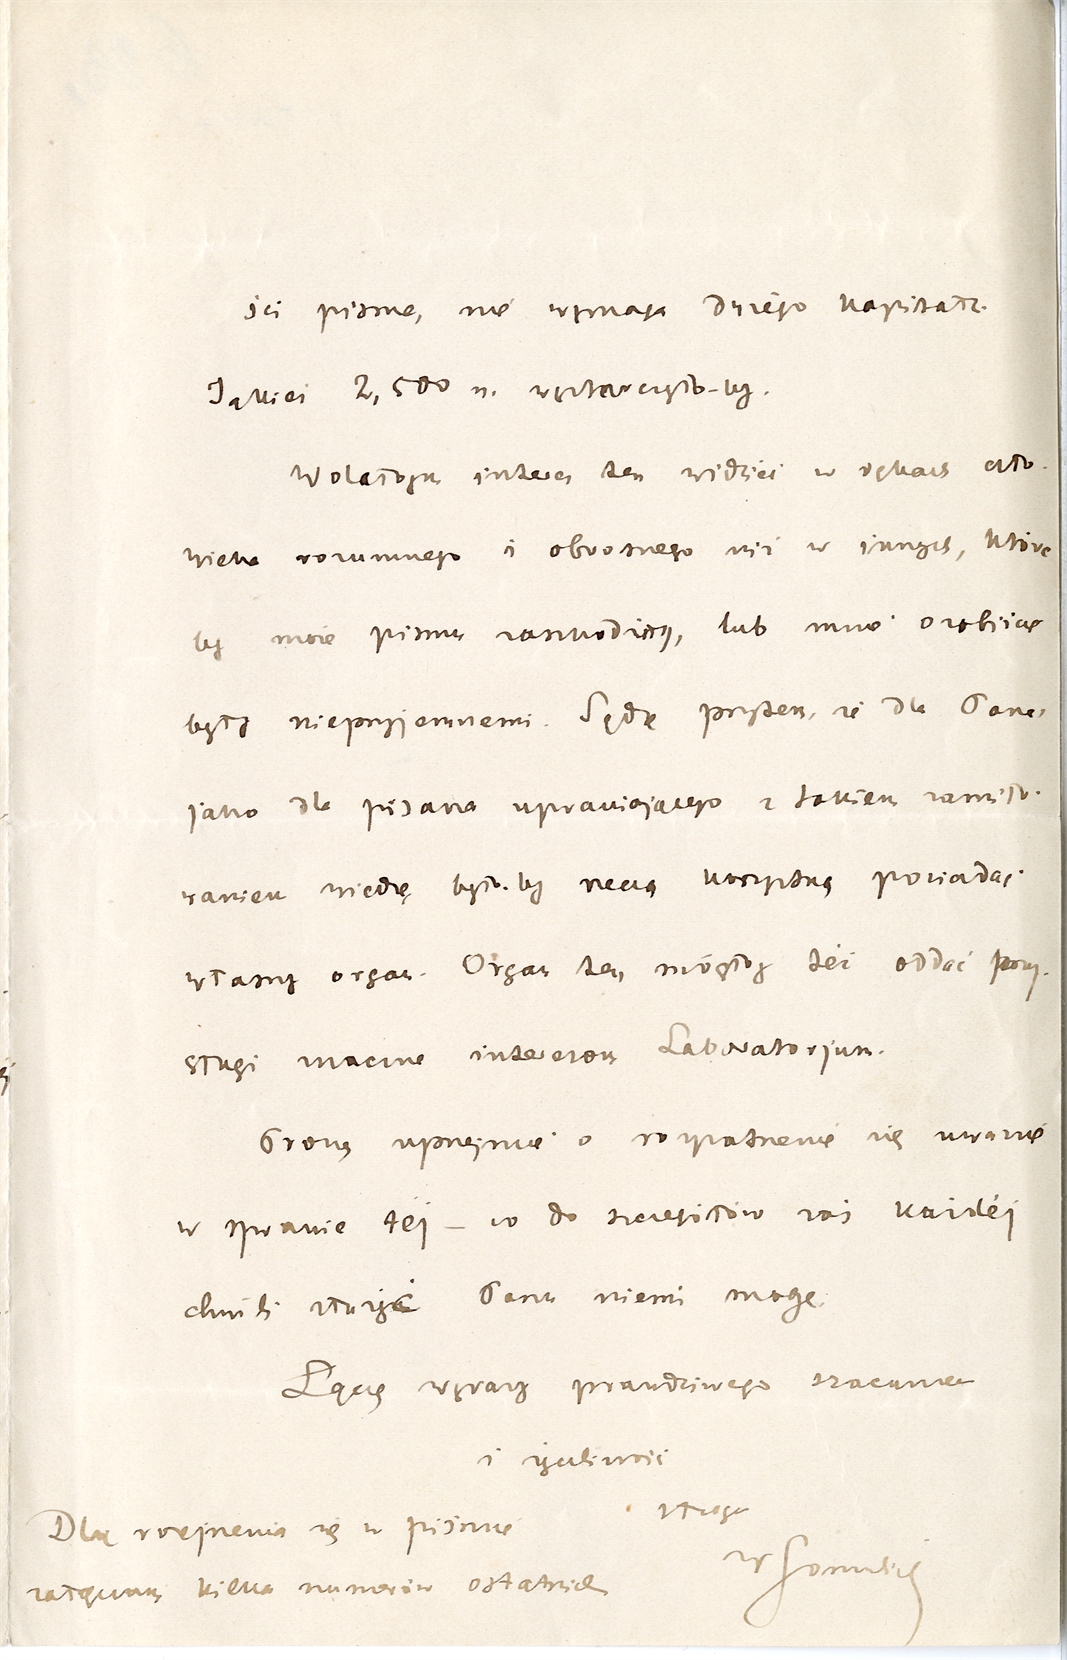 ści pisma, nie wymaga dużego kapitału.
Jakieś 2,500 r. wystarczyło-by.
Wolałbym interes ten widzieć w rękach czło-
wieka rozumnego i obrotnego niż w innych, które
by moie pismo zaszkodziły, lub mnie osobiście
były nieprzyjemnemi. Sądzę przytem, że dla Pana,
jako dla pisarza uprawiającego z takiem zamiło-
waniem wiedzę było-by rzeczą korzystną posiadać
własny organ. Organ ten, mógłby téż oddać przy-
sługi znaczne interesom Laboratorjum.
Proszę uprzejmie o rozpatrzenie się uważne
w sprawie téj – co do szczegółów zaś każdéj
chwili służyć Panu niemi mogę.
Łączę wyrazy prawdziwego szacunku
i życzliwości
sługa
W Gomulicki
Dla rozejrzenia się w piśmie
załączam kilka numerów ostatnich